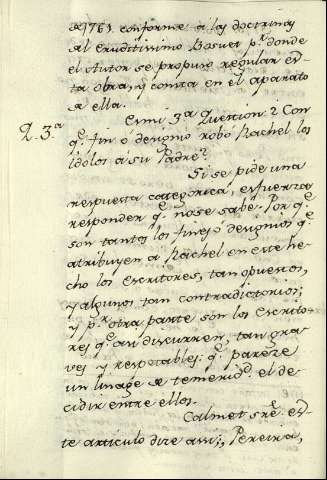 de 1761. conforme a las doctrinas
del Eruditissimo Bosuet pr. donde
el Autor se propuso regular es-
ta obra, y consta en el aparato
de ella.
Es mi 3ª Question: Con
2. 3ª
qe. fin ó designio robó Rachel los
idolos a su Padre?
Si se pide una
respuesta categorica, es fuerza
responder qe. no se sabe. Por qe.
son tantos los fines ó designios qe.
atribuyen a Rachel en este he-
cho los escritores, tan opuestos,
y algunos tan contradictorios;
y pr. otra parte son los Escrito-
res qe. asi discurren, tan gra-
ves y respetables: qe. pareze
un linage de temeridd. el de-
cidir entre ellos.
Calmet sre. es-
te articulo dize assi; Pereira,